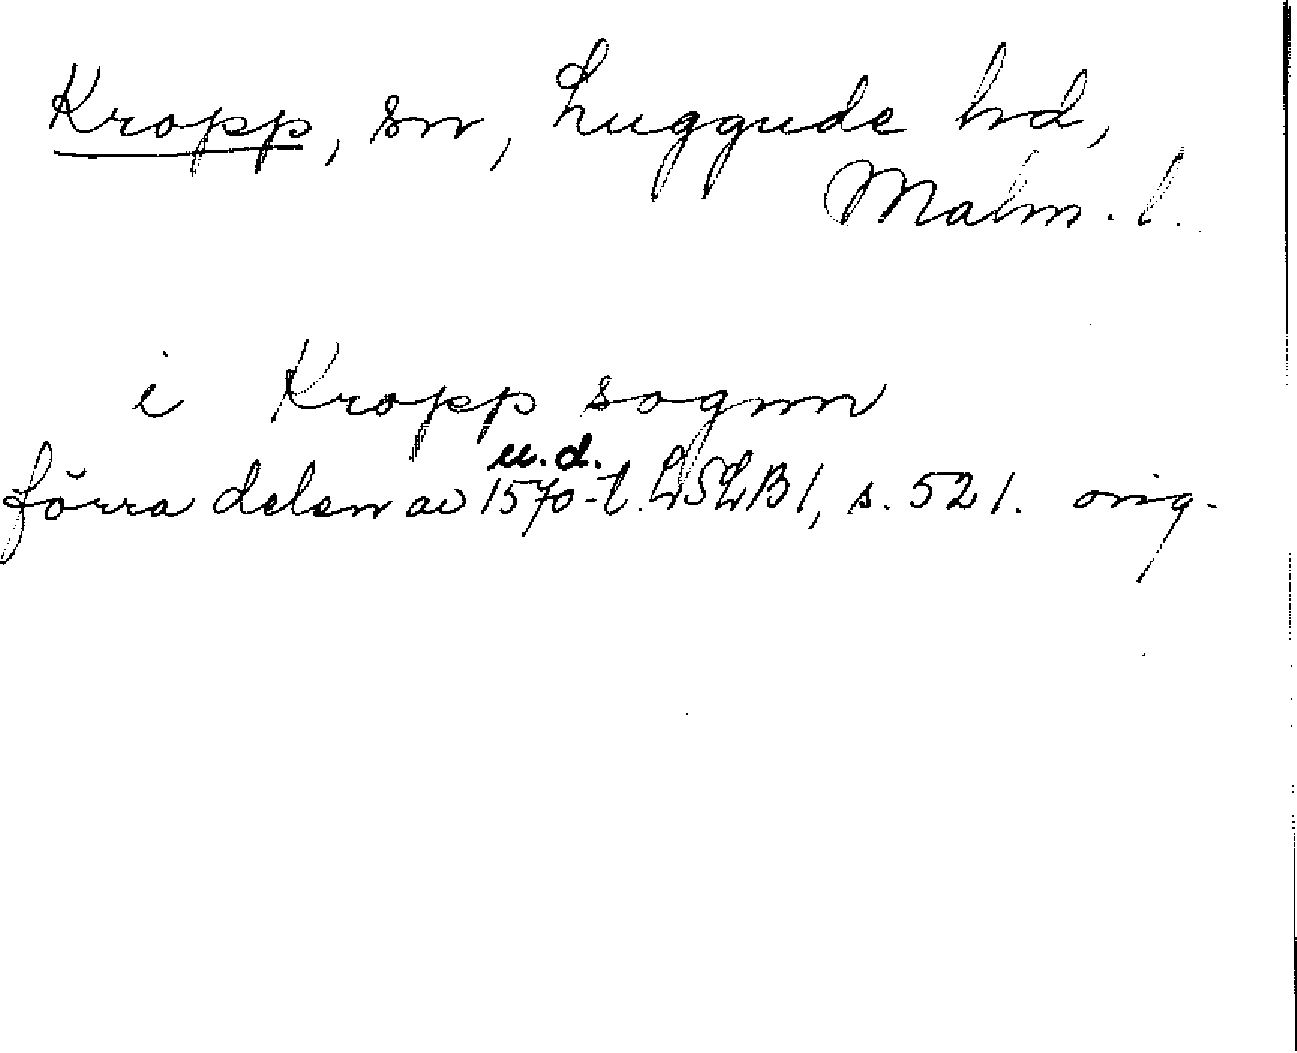 Kropp, sn, Luggude hd,
Malm. l.
i Kropp sognn
u.d.
förra delen av 1570-t. LSLB 1, s. 521. orig.